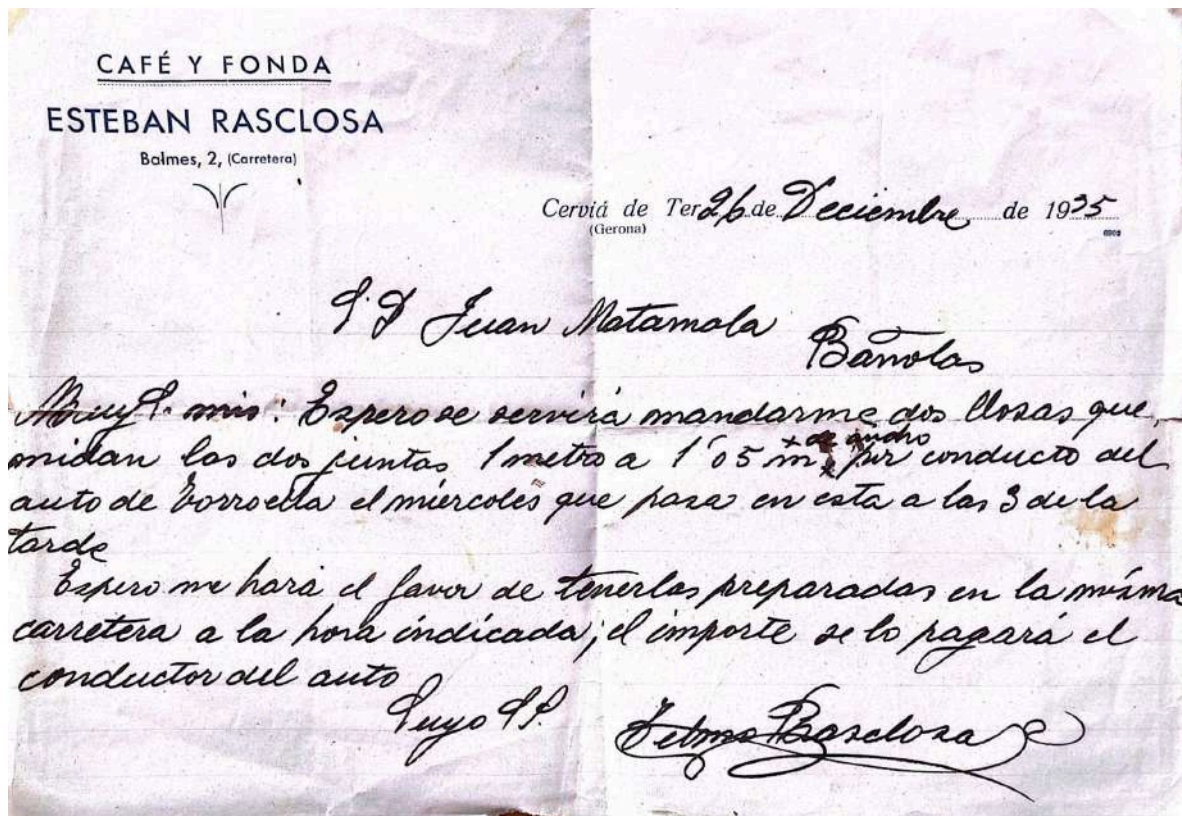 CAFÉ Y FONDA
ESTEBAN RASCLOSA
Balmes, 2, (Carretera)
Cerviá de Ter 26 de Deciembre de 1935
(Gerona)
S. D Juan Matamala
Bañolas
Muy S. mio: Espero se servirá mandarme dos llosas que
x de ancho
midan las dos juntas 1 metro a 1'05 m x por conducto del
auto de Torroella el miércoles que pasa en esta a las 3 de la
tarde
Espero me hará el favor de tenerlas preparadas en la misma
carretera a la hora indicada; el importe se lo pagará el
conductor del auto
Suyo SS.
Rasclosa